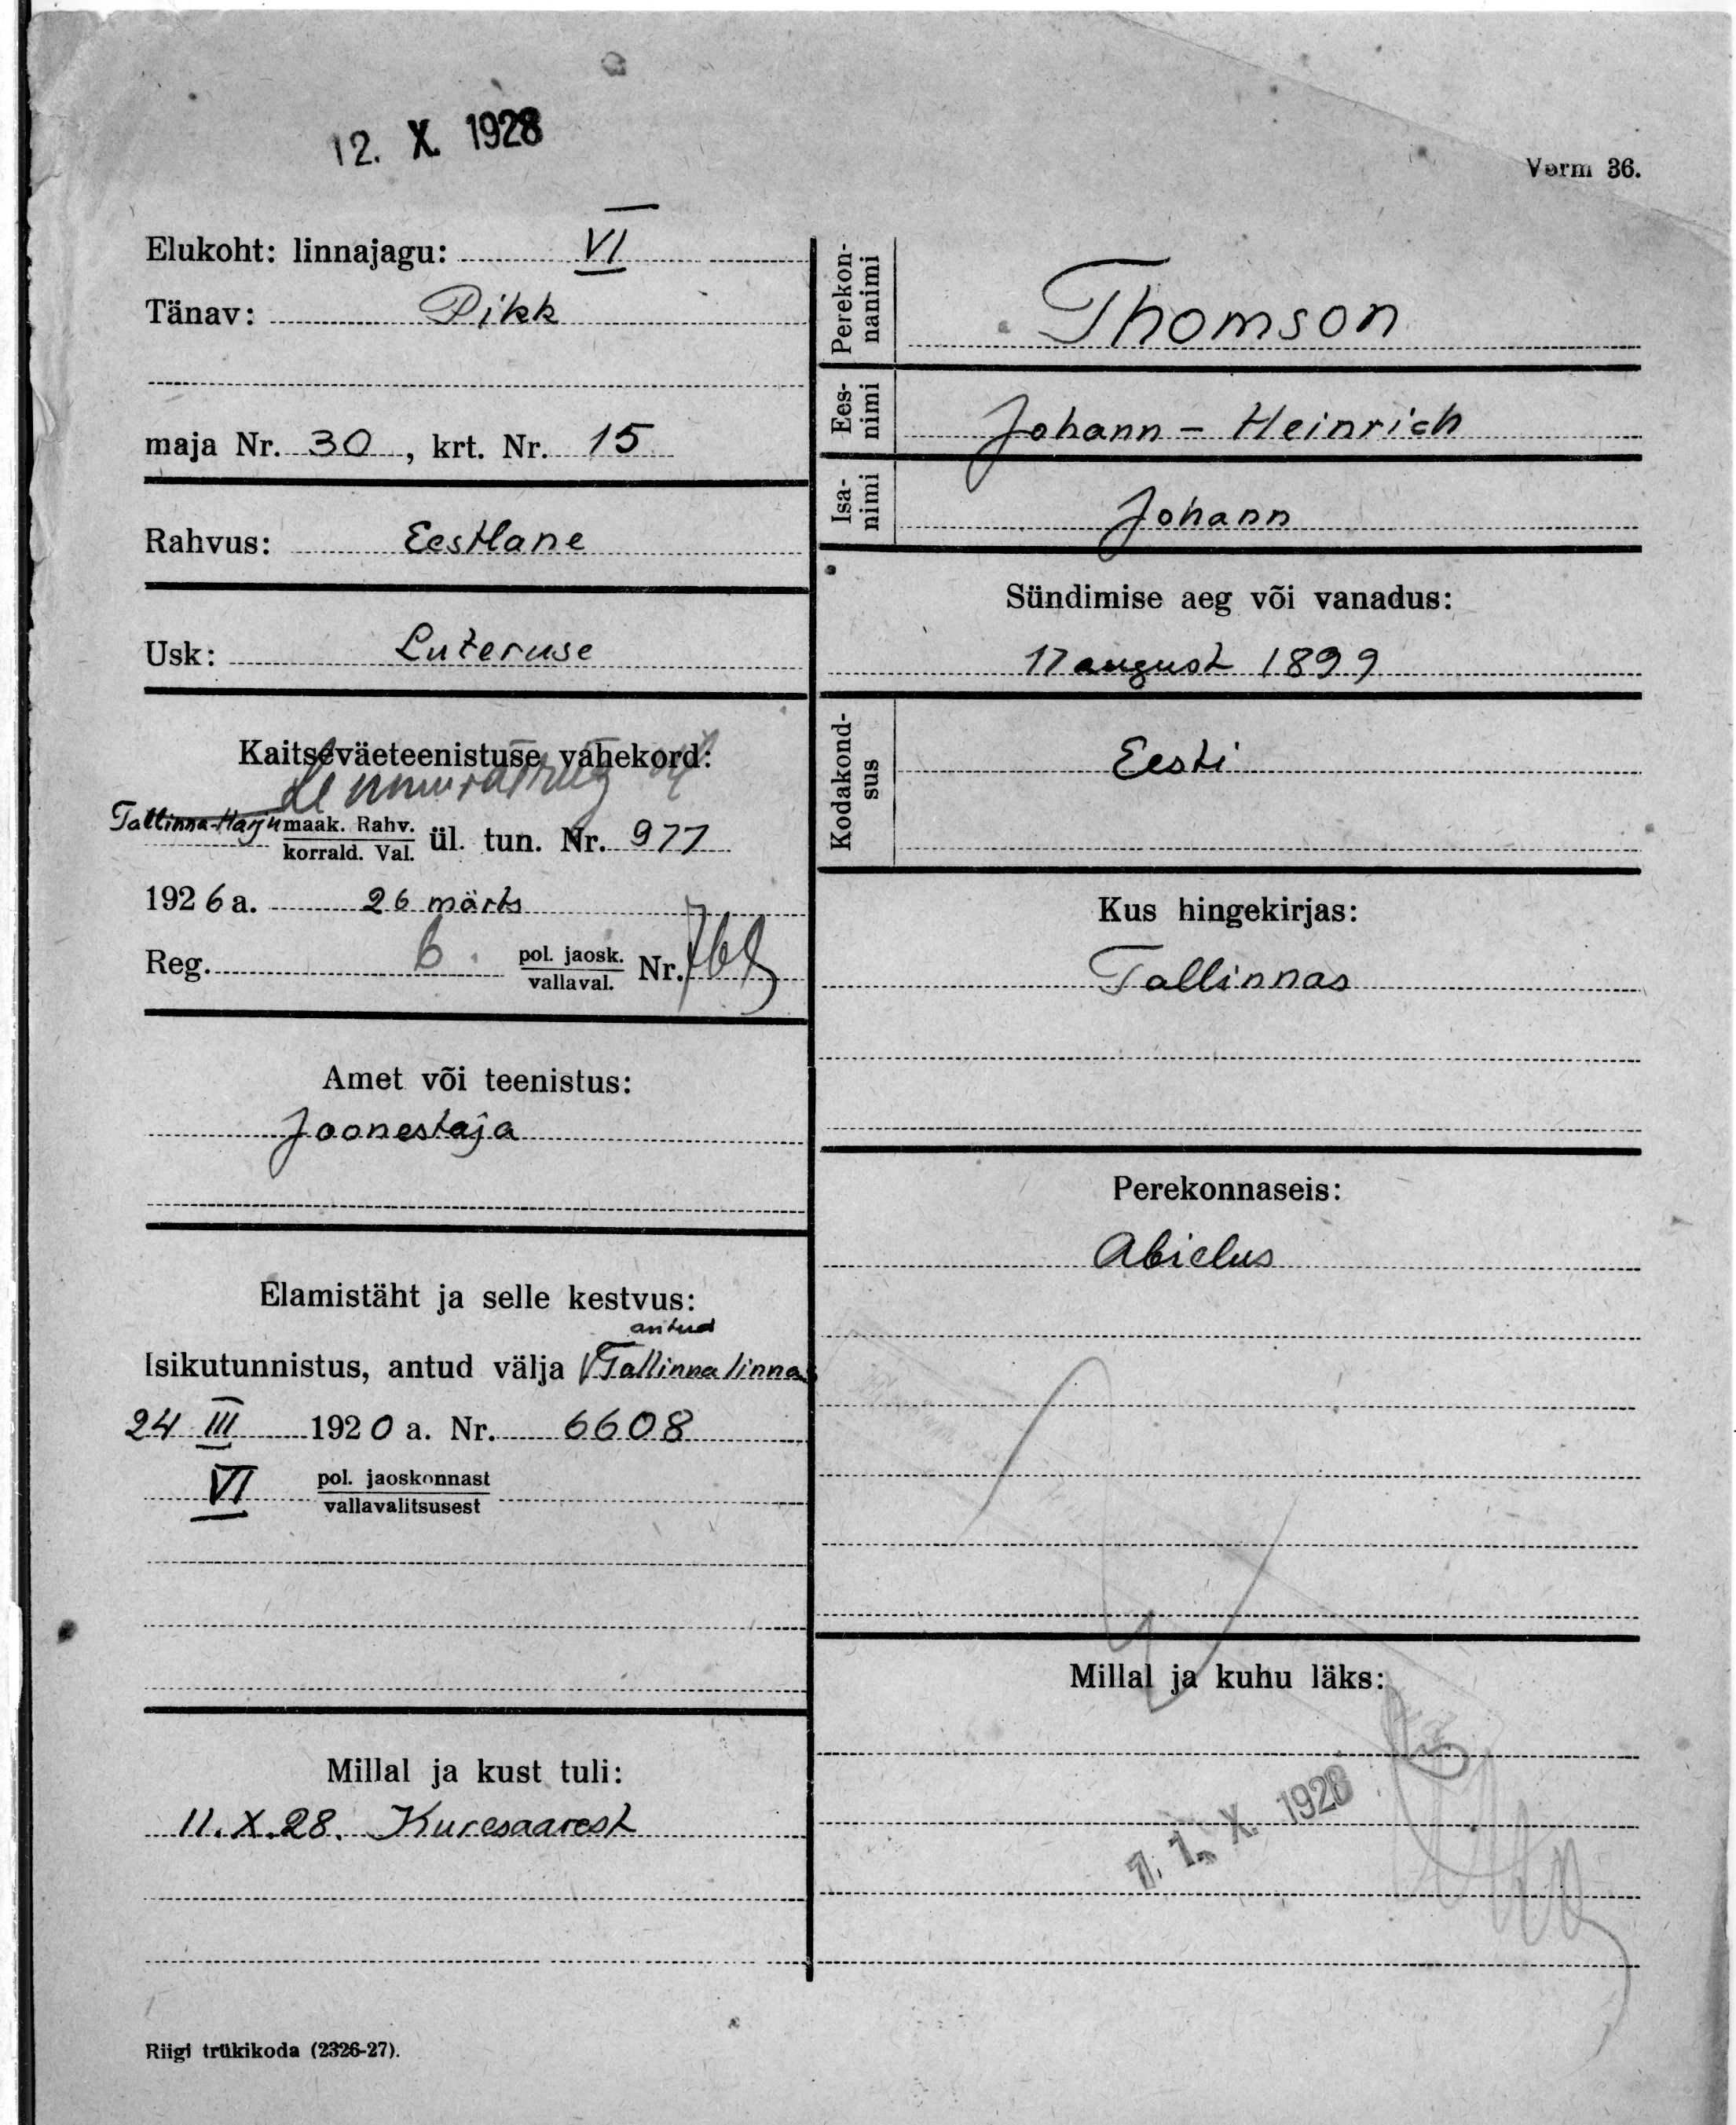 12. X. 1928
Vorm 36.
Elukoht: linnajagu: VI
Tänav: Pikk
maja Nr. 30, krt. Nr. 15
Rahvus: Eestlane
Usk: Luteruse
Kaitseväeteenistuse vahekord:
Tallinna-Harju maak. Rahv.
korrald. Val. ül. tun. Nr. 977
1926 a. 26 märts
Reg. 6. pol. jaosk.
vallaval. Nr.
Amet või teenistus:
Joonestaja
Elamistäht ja selle kestvus:
antud
Isikutunnistus, antud välja Tallinna linnas
24 III 1920 a. Nr. 6608
VI pol. jaoskonnast
vallavalitsusest
Millal ja kust tuli:
11.X.28. Kuresaarest
Riigi trükikoda (2326-27).
Perekon-
nanimi
Thomson
Ees-
nimi
Johann-Heinrich
Isa-
nimi
Johann
Sündimise aeg või vanadus:
17 august 1899
Kodakond-
sus
Eesti
Kus hingekirjas:
Tallinnas
Perekonnaseis:
Abielus
Millal ja kuhu läks:
11. X. 1928